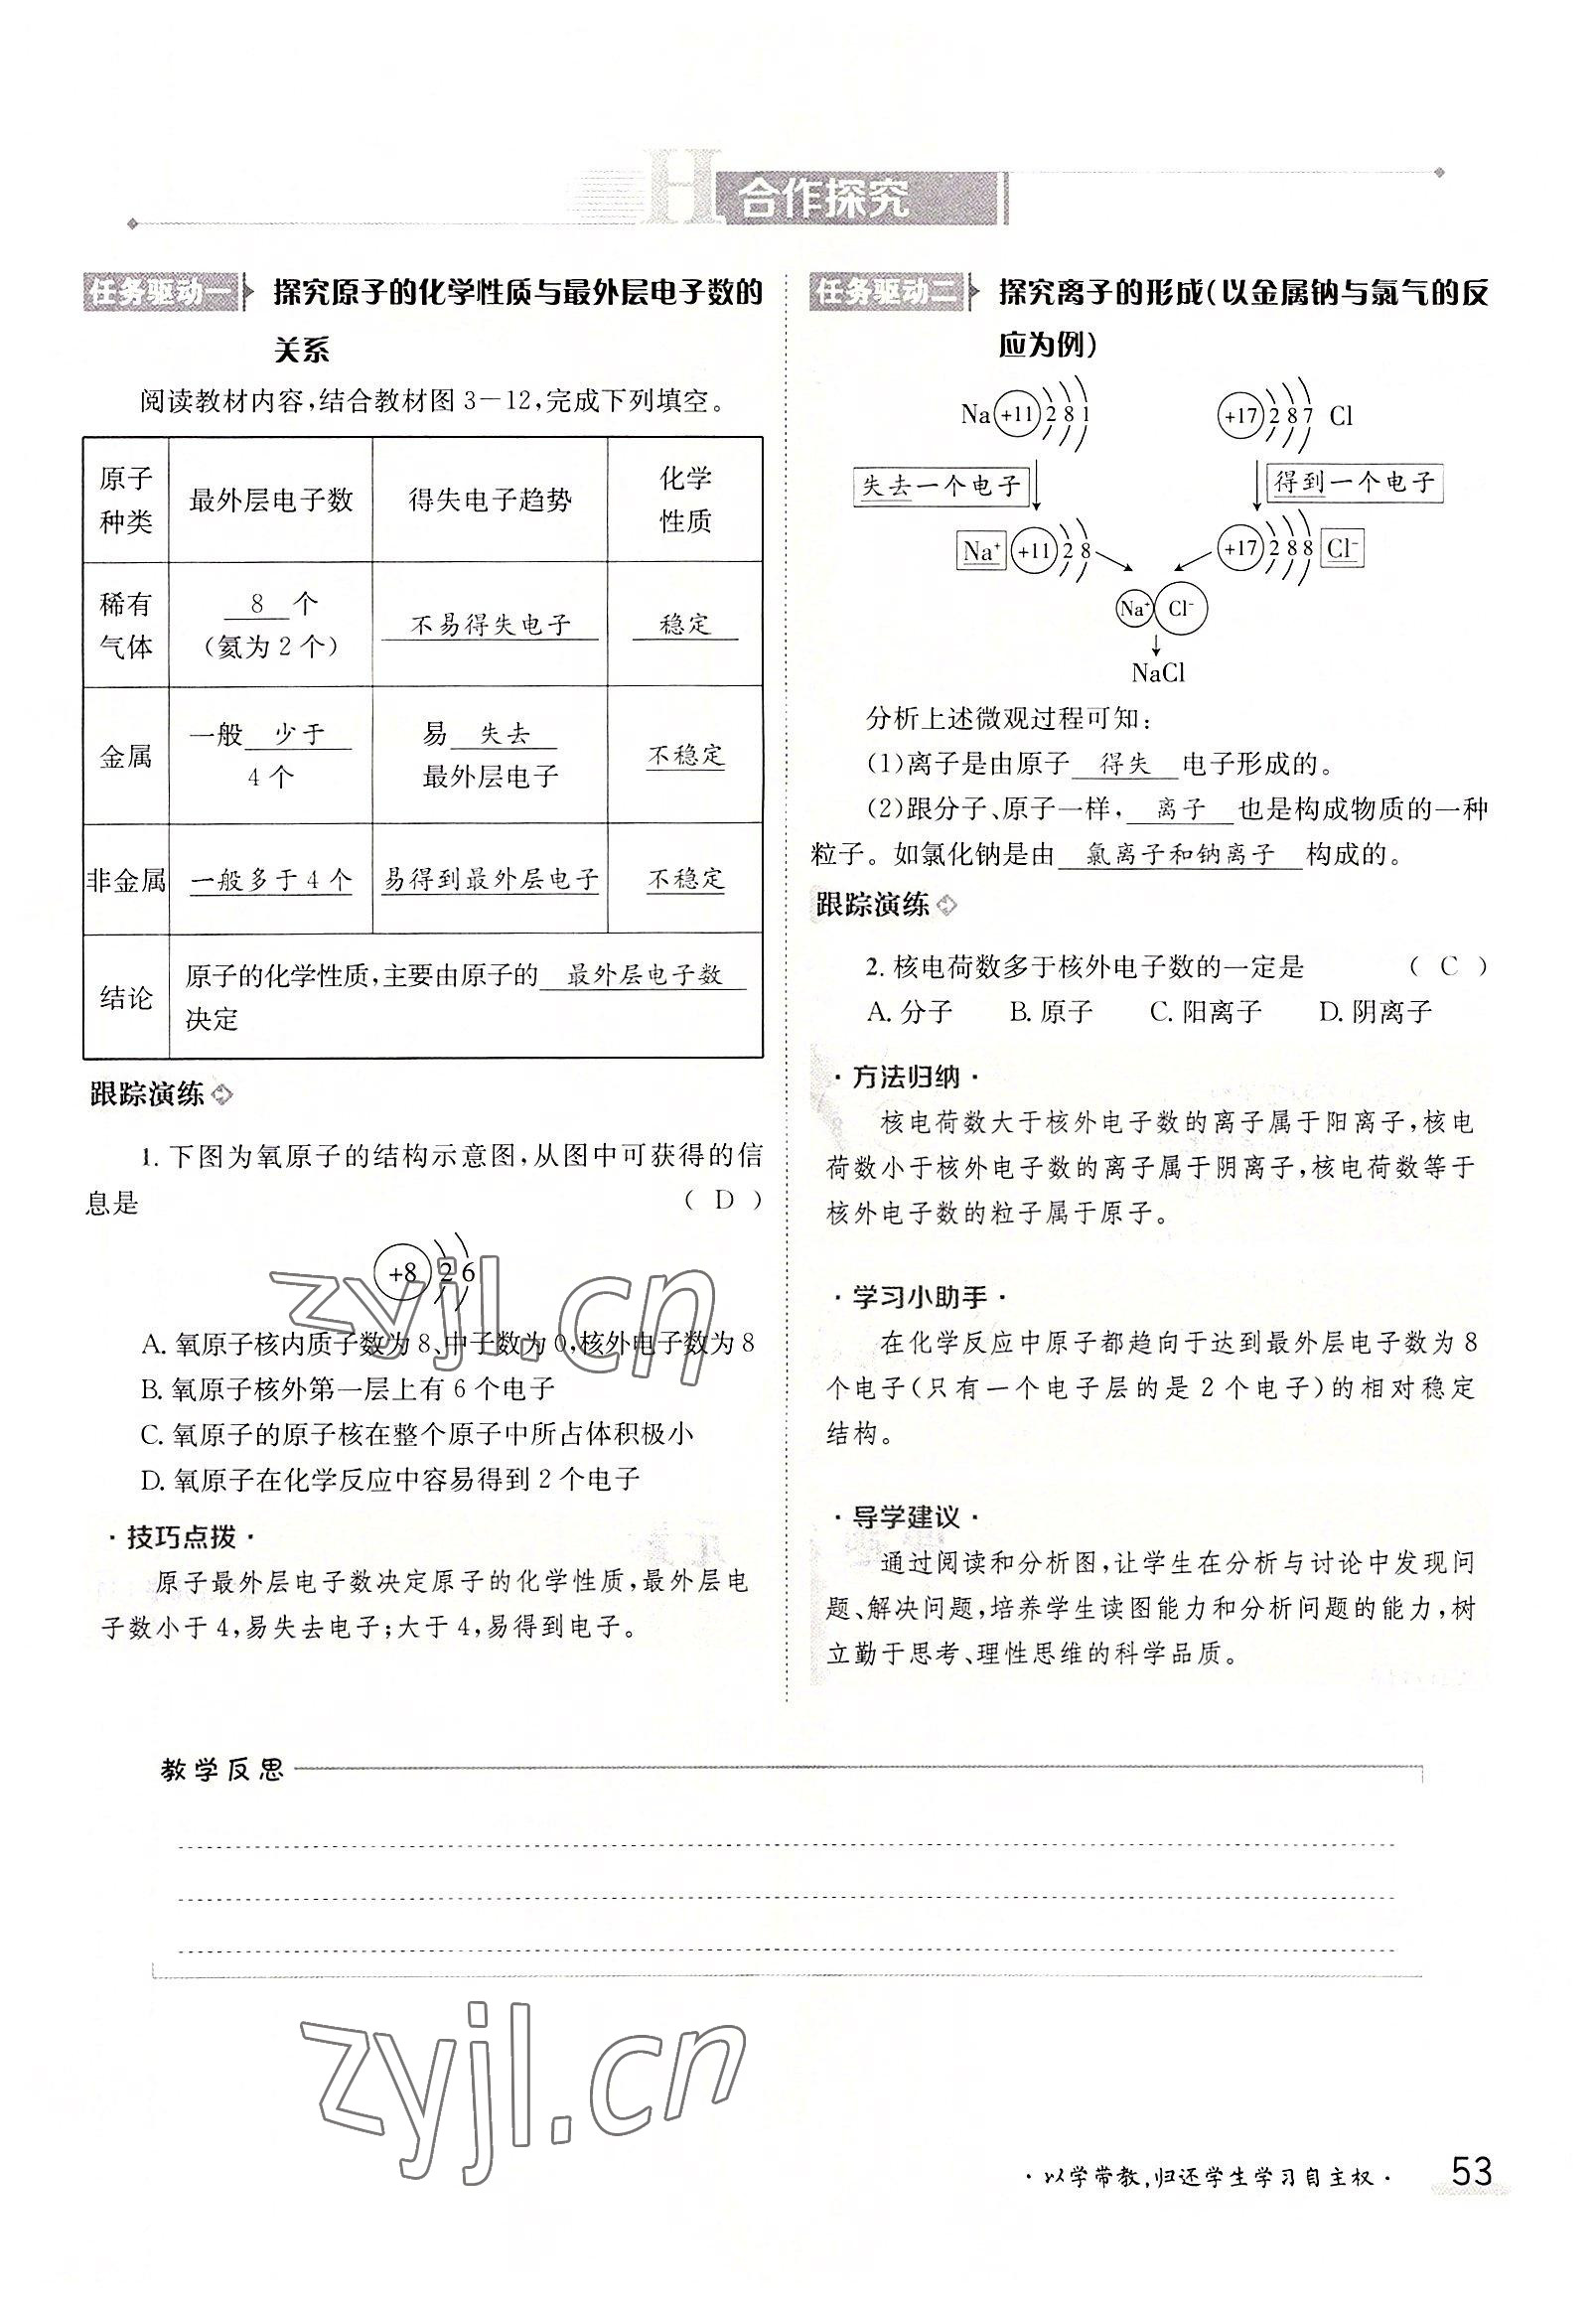 H 合作探究
任务驱动一 探究原子的化学性质与最外层电子数的
关系
阅读教材内容,结合教材图3-12,完成下列填空。
原子
种类
最外层电子数
得失电子趋势
化学
性质
稀有
气体
8 个
(氦为2个)
不易得失电子
稳定
金属
一般 少于
4个
易 失去
最外层电子
不稳定
非金属
一般多于4个
易得到最外层电子
不稳定
结论
原子的化学性质,主要由原子的 最外层电子数
决定
跟踪演练
1. 下图为氧原子的结构示意图,从图中可获得的信
息是 ( D )
+8 2 6
A. 氧原子核内质子数为8、中子数为0,核外电子数为8
B. 氧原子核外第一层上有6个电子
C. 氧原子的原子核在整个原子中所占体积极小
D. 氧原子在化学反应中容易得到2个电子
·技巧点拨·
原子最外层电子数决定原子的化学性质,最外层电
子数小于4,易失去电子;大于4,易得到电子。
任务驱动二 探究离子的形成(以金属钠与氯气的反
应为例)
Na +11 2 8 1
+17 2 8 7 Cl
失去一个电子
得到一个电子
Na⁺ +11 2 8
+17 2 8 8 Cl⁻
Na⁺ Cl⁻
NaCl
分析上述微观过程可知:
(1)离子是由原子 得失 电子形成的。
(2)跟分子、原子一样, 离子 也是构成物质的一种
粒子。如氯化钠是由 氯离子和钠离子 构成的。
跟踪演练
2. 核电荷数多于核外电子数的一定是 ( C )
A. 分子 B. 原子 C. 阳离子 D. 阴离子
·方法归纳·
核电荷数大于核外电子数的离子属于阳离子,核电
荷数小于核外电子数的离子属于阴离子,核电荷数等于
核外电子数的粒子属于原子。
·学习小助手·
在化学反应中原子都趋向于达到最外层电子数为8
个电子(只有一个电子层的是2个电子)的相对稳定
结构。
·导学建议·
通过阅读和分析图,让学生在分析与讨论中发现问
题、解决问题,培养学生读图能力和分析问题的能力,树
立勤于思考、理性思维的科学品质。
教学反思
zyjl.cn
zyjl.cn
·以学带教,归还学生学习自主权· 53